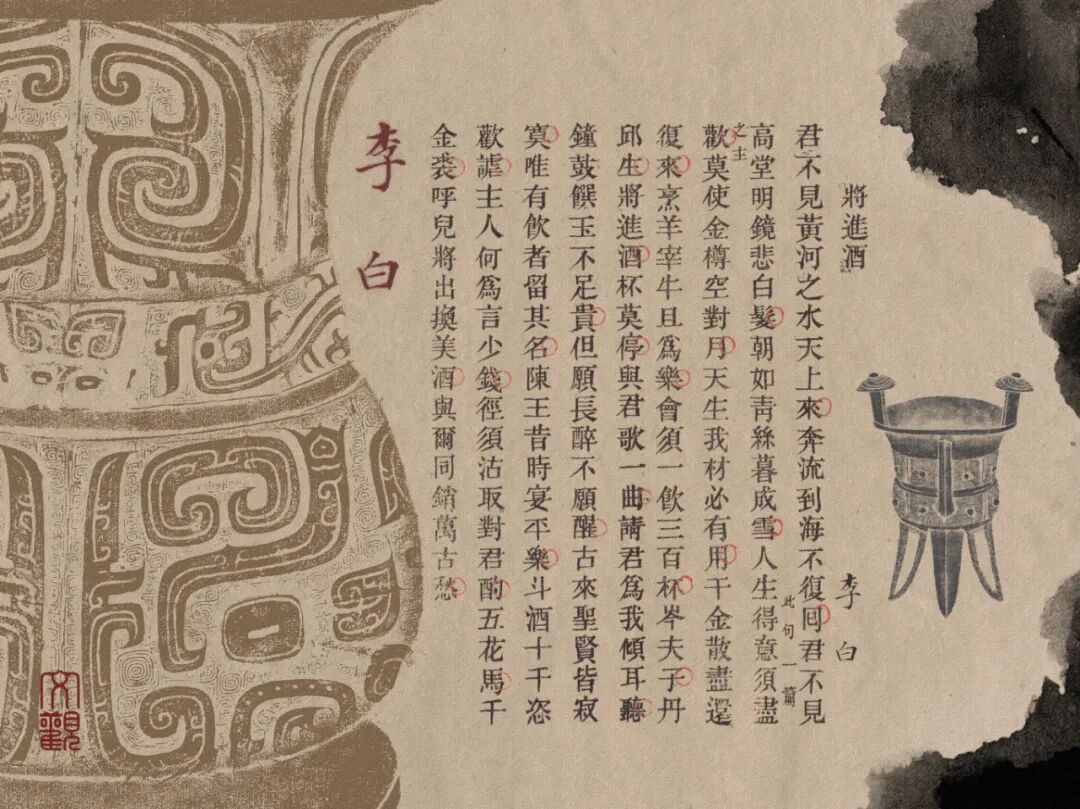 將進酒
李白
君不見黃河之水天上來奔流到海不復囘君不見
高堂明鏡悲白髮朝如靑絲暮成雪人生得意須盡
此句一篇
之主
歡莫使金樽空對月天生我材必有用千金散盡還
復來烹羊宰牛且爲樂會須一飲三百杯岑夫子丹
邱生將進酒杯莫停與君歌一曲請君爲我傾耳聽
鐘鼓饌玉不足貴但願長醉不願醒古來聖賢皆寂
寞唯有飮者留其名陳王昔時宴平樂斗酒十千恣
歡謔主人何爲言少錢徑須沽取對君酌五花馬千
金裘呼兒將出換美酒與爾同銷萬古愁
李白
文觀